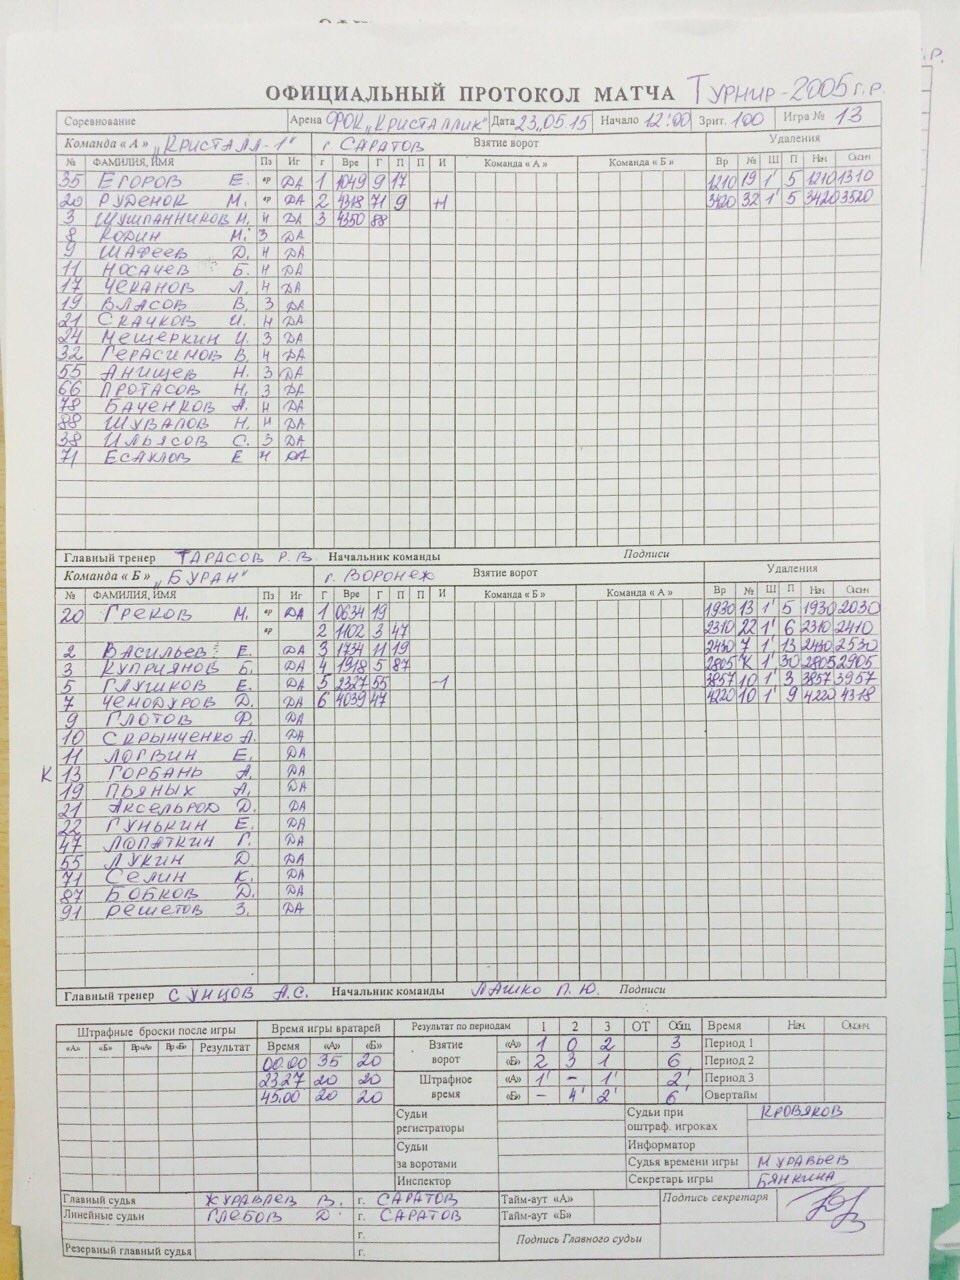 ОФИЦИАЛЬНЫЙ ПРОТОКОЛ МАТЧА Турнир - 2005 г.р.
Соревнование Арена ФОК „Кристаллик" Дата 23.05.15 Начало 12:00 Зрит. 100 Игра № 13
Команда « А » „Кристалл-1" г. Саратов Взятие ворот Удаления
№ ФАМИЛИЯ, ИМЯ Пз Иг Г Вре Г П П И Команда « А » Команда « Б » Вр № Ш П Нач Оконч
35 Егоров Е. вр ДА 1 1049 9 17 1210 19 1' 5 1210 1310
20 Руденок М. вр ДА 2 4318 71 9 +1 3420 32 1' 5 3420 3520
3 Шушпанников М. Н ДА 3 4350 88
8 Кодин М. З ДА
9 Шафеев Д. Н ДА
11 Носачев Б. Н ДА
17 Чеканов Л. Н ДА
19 Власов В. З ДА
21 Скачков И. Н ДА
24 Мещеркин И. З ДА
32 Герасимов В. Н ДА
55 Анищев Н. З ДА
66 Протасов Н. З ДА
78 Баченков А. Н ДА
88 Шувалов Н. Н ДА
38 Ильясов С. З ДА
71 Есаклов Е Н ДА
Главный тренер Тарасов Р.В. Начальник команды Подписи
Команда « Б » „Буран" г. Воронеж Взятие ворот Удаления
№ ФАМИЛИЯ, ИМЯ Пз Иг Г Вре Г П П И Команда « Б » Команда « А » Вр № Ш П Нач Оконч
20 Греков М. вр ДА 1 0634 19 1930 13 1' 5 1930 2030
вр 2 1102 3 47 2310 22 1' 6 2310 2410
2 Васильев Е. ДА 3 1734 11 19 2430 7 1' 13 2430 2530
3 Куприянов Б. ДА 4 1918 5 87 2805 К 1' 30 2805 2905
5 Глушков Е. ДА 5 2327 55 -1 3857 10 1' 3 3857 3957
7 Чемодуров Д. ДА 6 4039 47 4220 10 1' 9 4220 4318
9 Глотов Ф. ДА
10 Скрынченко А. ДА
11 Логвин Е. ДА
К 13 Горбань А. ДА
19 Пьяных А. ДА
21 Аксельрод Д. ДА
22 Гунькин Е. ДА
47 Лопаткин Г. ДА
55 Лукин Д. ДА
71 Селин К. ДА
87 Бобков Д. ДА
91 Решетов З. ДА
Главный тренер Сунцов А.С. Начальник команды Лашко П.Ю. Подписи
Штрафные броски после игры Время игры вратарей Результат по периодам 1 2 3 ОТ Общ Время Нач Оконч
«А» «Б» Вр«А» Вр«Б» Результат Время «А» «Б» Взятие ворот «А» 1 0 2 3 Период 1
00.00 35 20 «Б» 2 3 1 6 Период 2
2327 20 20 Штрафное время «А» 1' - 1' 2' Период 3
45.00 20 20 «Б» - 4' 2' 6' Овертайм
Судьи регистраторы Судьи при оштраф. игроках Кровяков
Судьи за воротами Информатор
Судья времени игры Муравьев
Инспектор Секретарь игры Бянкина
Главный судья Журавлев В. г. Саратов Тайм-аут «А» Подпись секретаря
Линейные судьи Глебов Д. г. Саратов Тайм-аут «Б»
г. Подпись Главного судьи
Резервный главный судья г.